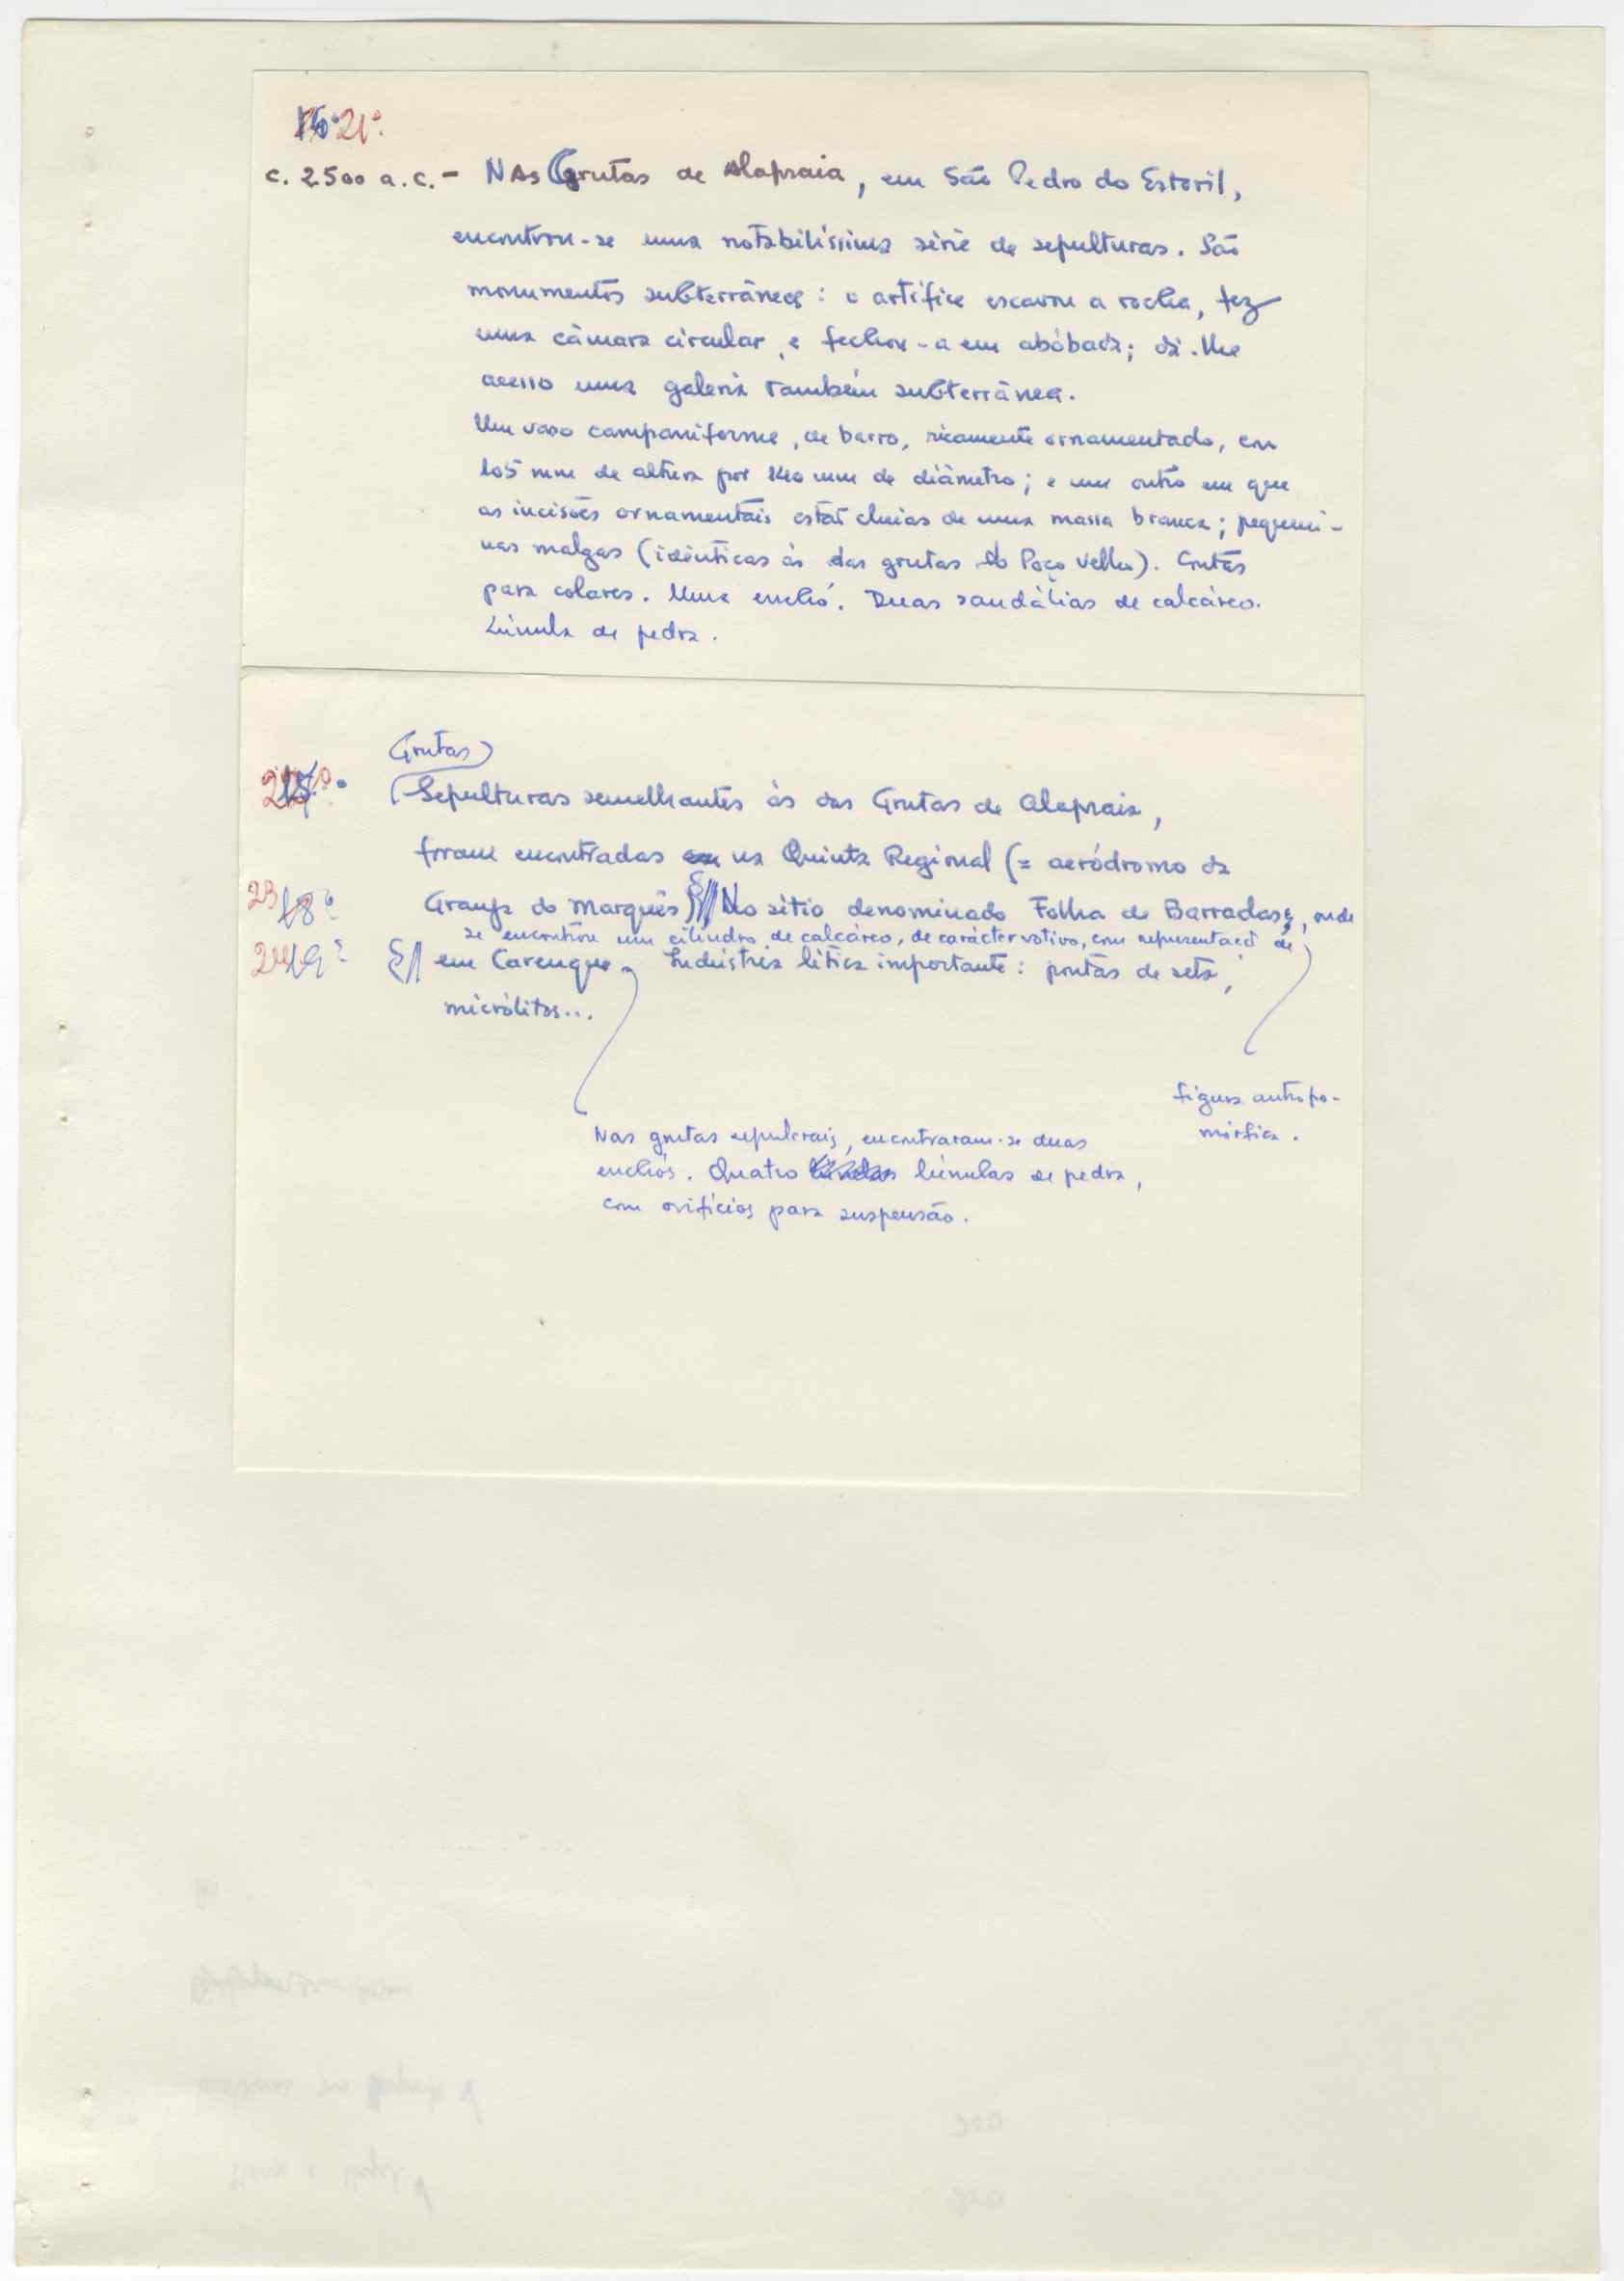 21º.
c. 2.500 a.c. - NAs Grutas de Alapraia, em São Pedro do Estoril,
encontrou-se uma notabilíssima série de sepulturas. São
monumentos subterrâneos: o artífice escavou a rocha, fez
uma câmara circular, e fechou-a em abóbada; dá-lhe
acesso uma galeria também subterrânea.
Um vaso campaniforme, de barro, ricamente ornamentado, com
105 mm de altura por 140 mm de diâmetro; e um outro em que
as incisões ornamentais estão cheias de uma massa branca; pequeni-
nas malgas (idênticas às das grutas do Poço Velho). Contas
para colares. Uma enchó. Duas sandálias de calcáreo.
Lúnula de pedra.
Grutas
Sepulturas semelhantes às das Grutas de Alapraia,
foram encontradas em na Quinta Regional (= aeródromo da
23 18º. Granja do Marquês) § // No sítio denominado Folha de Barradas, onde
se encontrou um cilindro de calcáreo, de carácter votivo, com representação de
24 19º § // em Carenque. Indústria lítica importante: pontas de seta,
micrólitos...
figura antropo-
mórfica.
Nas grutas sepulcrais, encontraram-se duas
enchós. Quatro lúnulas de pedra,
com orifícios para suspensão.